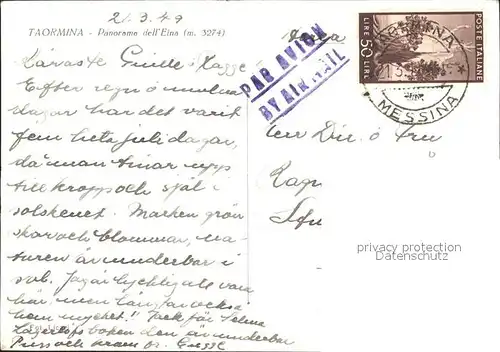 21.3.49
TAORMINA - Panorama dell'Etna (m. 3274)
Käraste Gisell o Kagge
Efter regn o mulna
dagar har det varit
fem heta juli dagar,
då man tinar upp
till kropp och själ i
solskenet. Marken grön
skar och blommar, na-
turen är underbar i
sol. Jag är lycklig att vara
här, men längtar också
hem mycket!! Tack för Selma
Lagerlöfs boken den är underbar
Puss och kram
PAR AVION
BY AIR MAIL
POSTE ITALIANE
LIRE 50 LIRE
TAORMINA
MESSINA
Dir. o Fru
privacy protection
Datenschutz